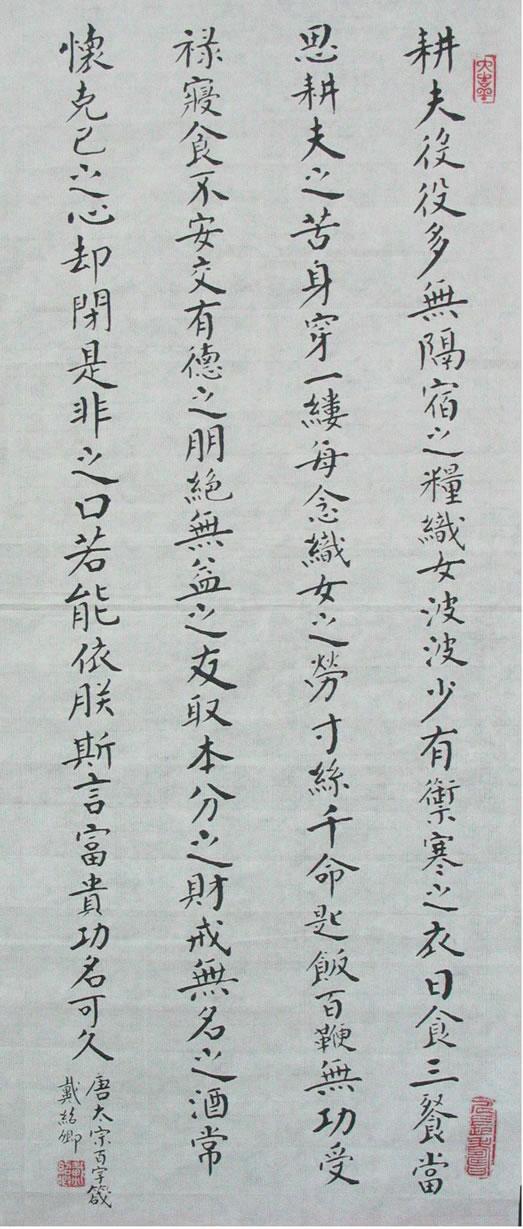 耕夫役役多無隔宿之糧織女波波少有禦寒之衣日食三餐當
思耕夫之苦身穿一縷每念織女之勞寸絲千命匙飯百鞭無功受
禄寢食不安交有德之朋絕無益之友取本分之財戒無名之酒常
懷克己之心却閉是非之口若能依朕斯言富貴功名可久
唐太宗百字箴
戴紹卿